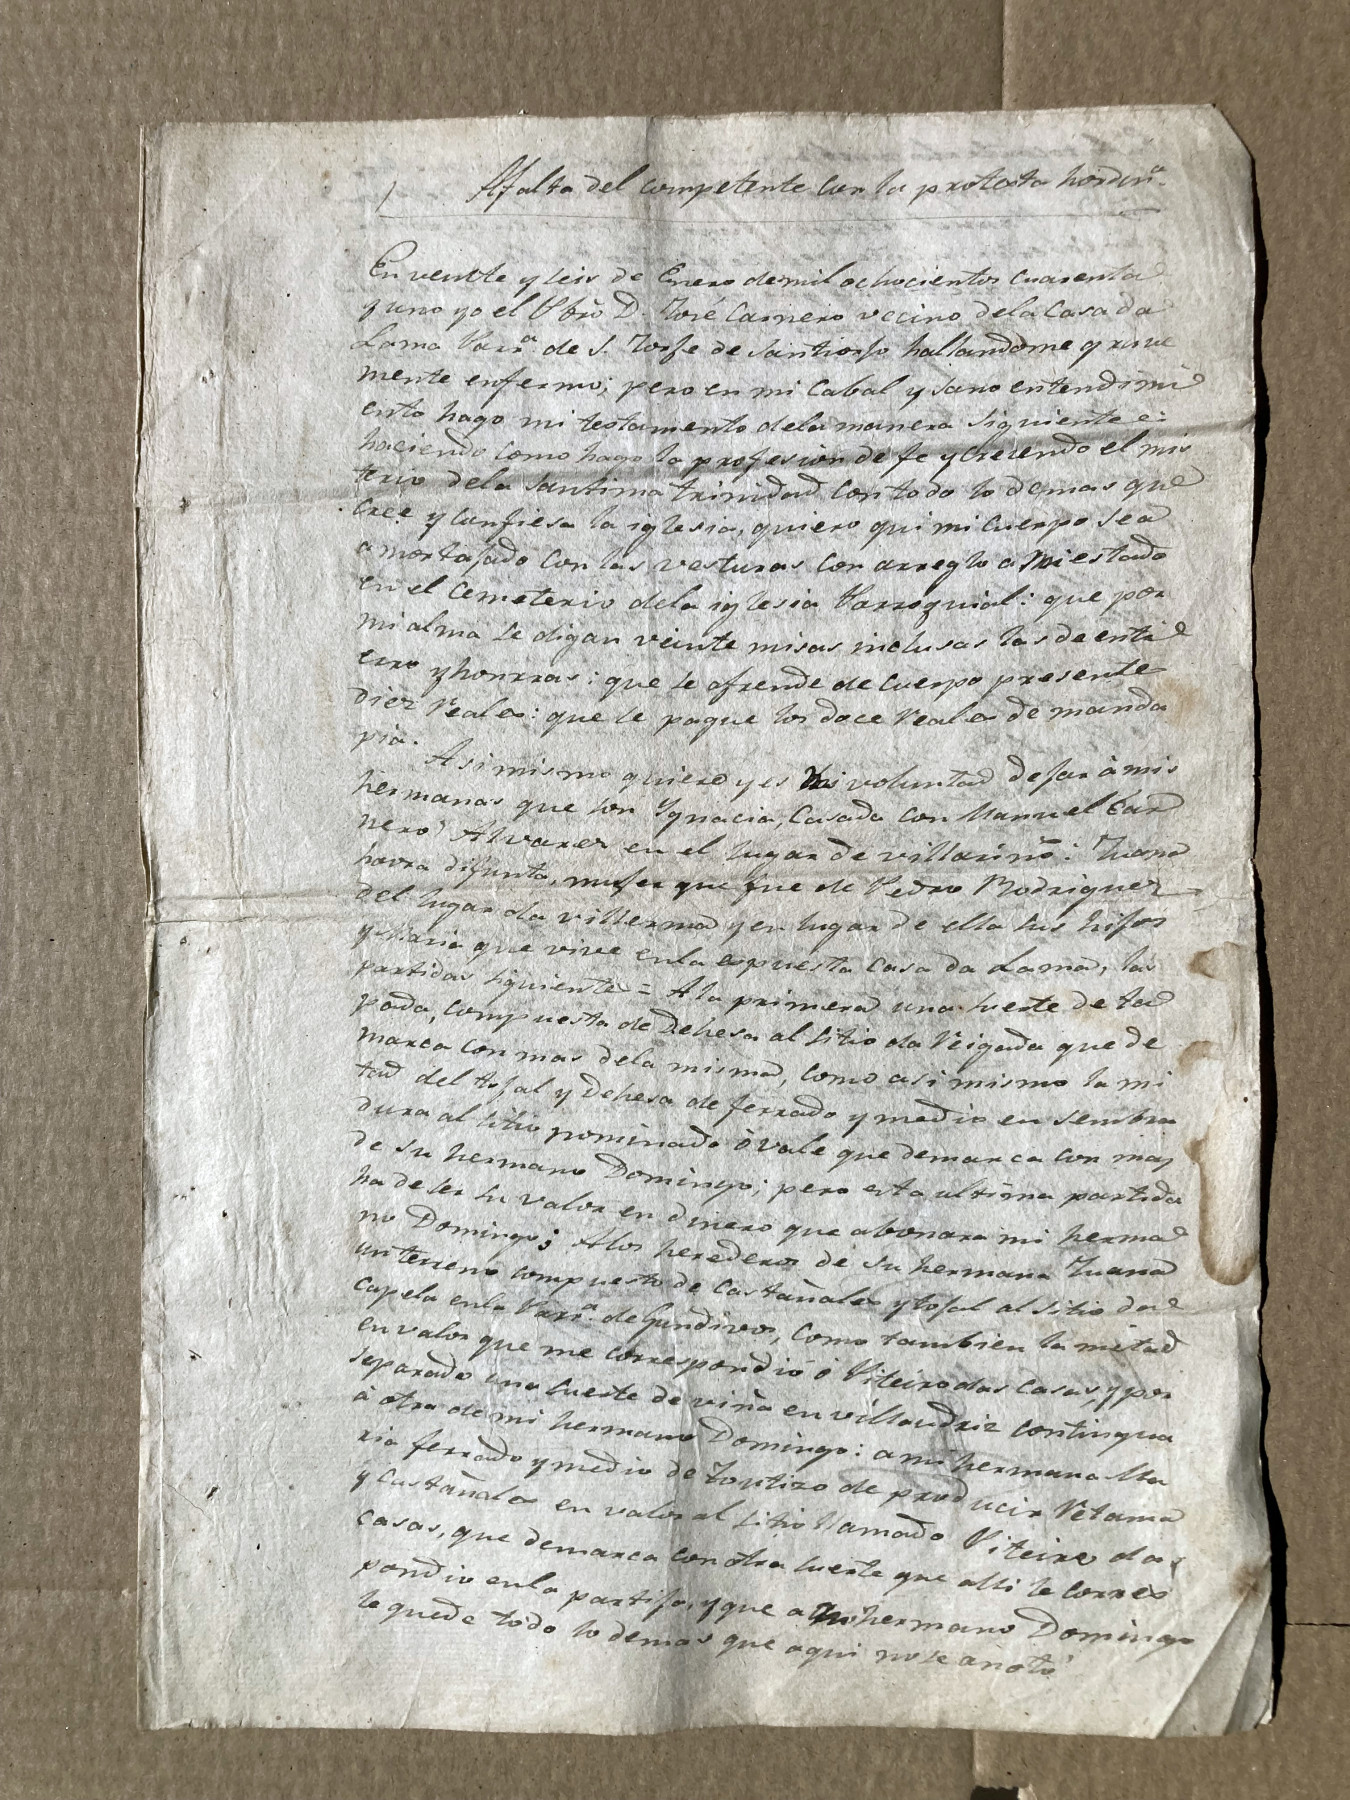 A falta del competente con la protexta hordinª.
En veinte y seis de Enero de mil ochocientos cuarenta
y uno yo el Pbrõ D. José Carnero vecino de la Casa da
Lama Parrª de S. Jorje de Santiorjo hallandome grave
mente enfermo; pero en mi Cabal y sano entendimi
ento hago mi testamento dela manera siguiente =
haciendo como hago la profesion de fe y creiendo el mis
terio dela Santima trinidad con todo lo demas que
Cree y confiesa la iglesia, quiero qui mi cuerpo sea
amortajado con las vesturas con arreglo a mi estado
en el Cemeterio dela iglesia Parroquial: que por
mi alma se digan veinte misas inclusas las de enti
erro y honrras: que se ofrende de cuerpo presente
diez Reales: que se pague los doce Reales de manda
pia.
Asi mismo quiero y es mi voluntad dejar à mis
hermanas que son Ygnacia, Casada con Manuel Car
nero Alvarez en el lugar de villariño: Juana
haora difunta, mujer que fue de Pedro Rodriguez
del lugar da villerma y en lugar de ella sus hijos
y Maria que vive enla espuesta Casa da Lama, las
partidas siguiente = A la primera una suerte de ta
pada, compuesta de Dehesa al sitio da Veigada que de
marca con mas dela misma, como asi mismo la mi
tad del tojal y Dehesa de ferrado y medio en sembra
dura al sitio nominado ò vale que demarca con mas
de su hermano Domingo; pero esta ultima partida
ha de ser su valor en dinero que abonara mi herma
no Domingo; A los herederos de su hermana Juana
un terreno compuesto de Castañales y tojal al sitio da
Capela enla Parrª. de Gundivos, como tambien la mitad
en valor que me correspondió ó Piteiro das Casas, y por
separado una suerte de viña en villaudriz contingua
à otra de mi hermano Domingo: a mi hermana Ma
ria ferrado y medio de de producir Retama
y Castañales en valor al sitio llamado Piteiro das
casas, que demarca con otra suerte que alli le corres
pondio enla partija, y que a mi hermano Domingo
le quede todo lo demas que aqui no se anotó